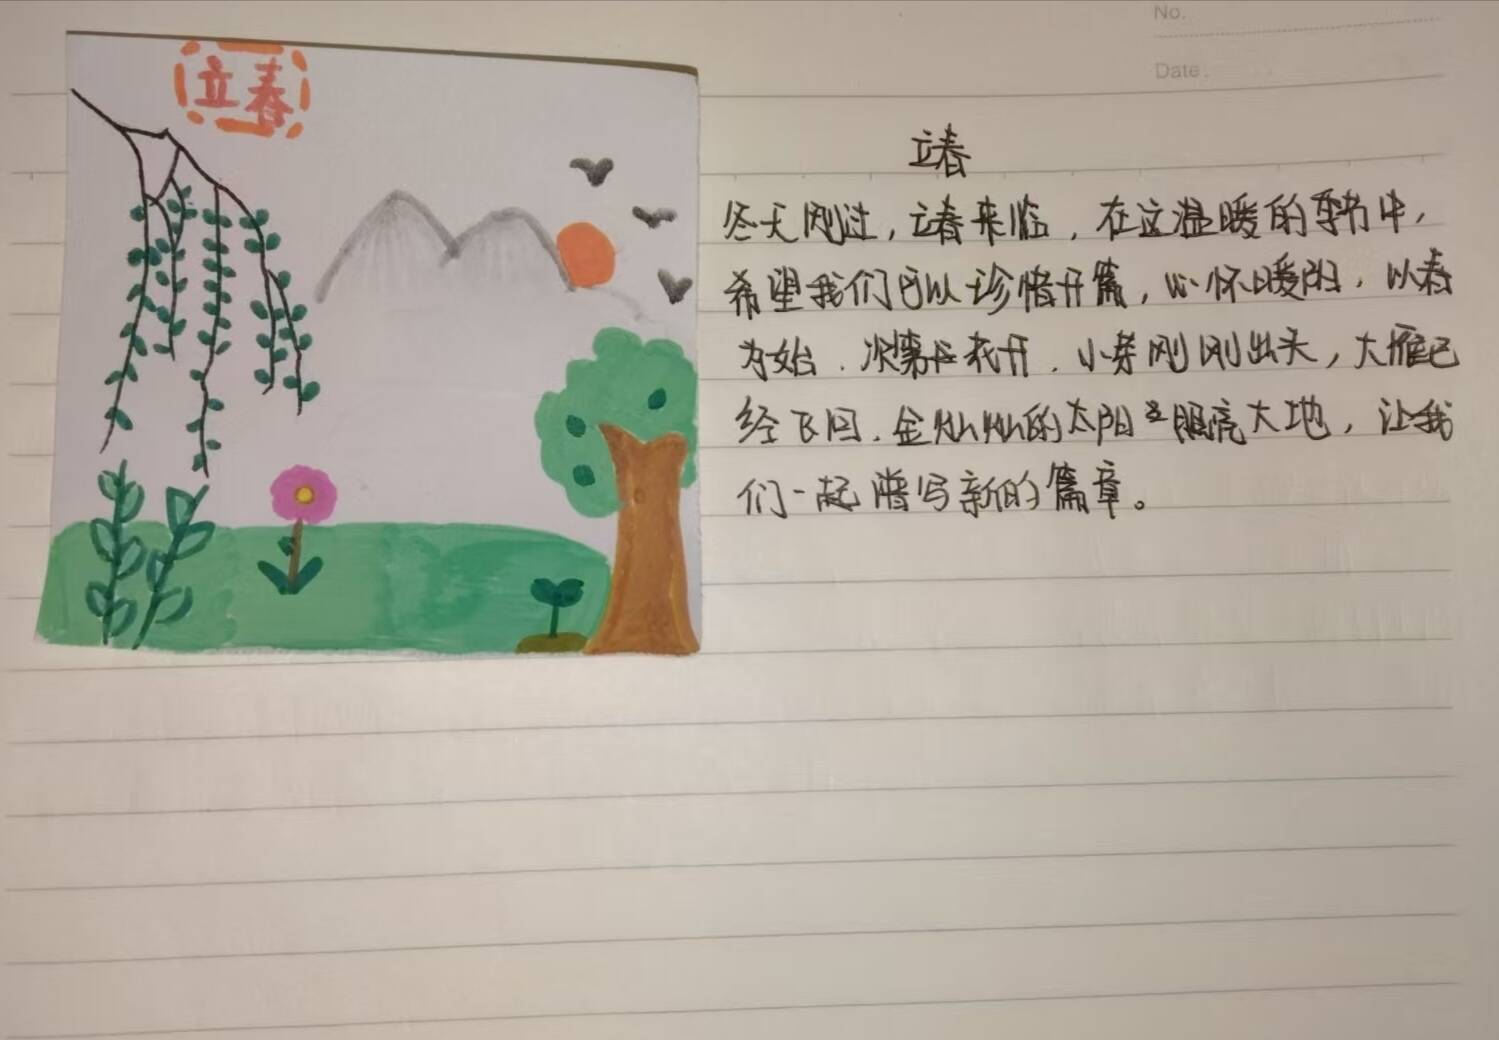 立春
No.
Date.
立春
冬天刚过，立春来临，在这温暖的季节中，
希望我们可以珍惜开篇，心怀暖阳，以春
为始，次第花开，小芽刚刚出头，大雁已
经飞回，金灿灿的太阳照亮大地，让我
们一起谱写新的篇章。